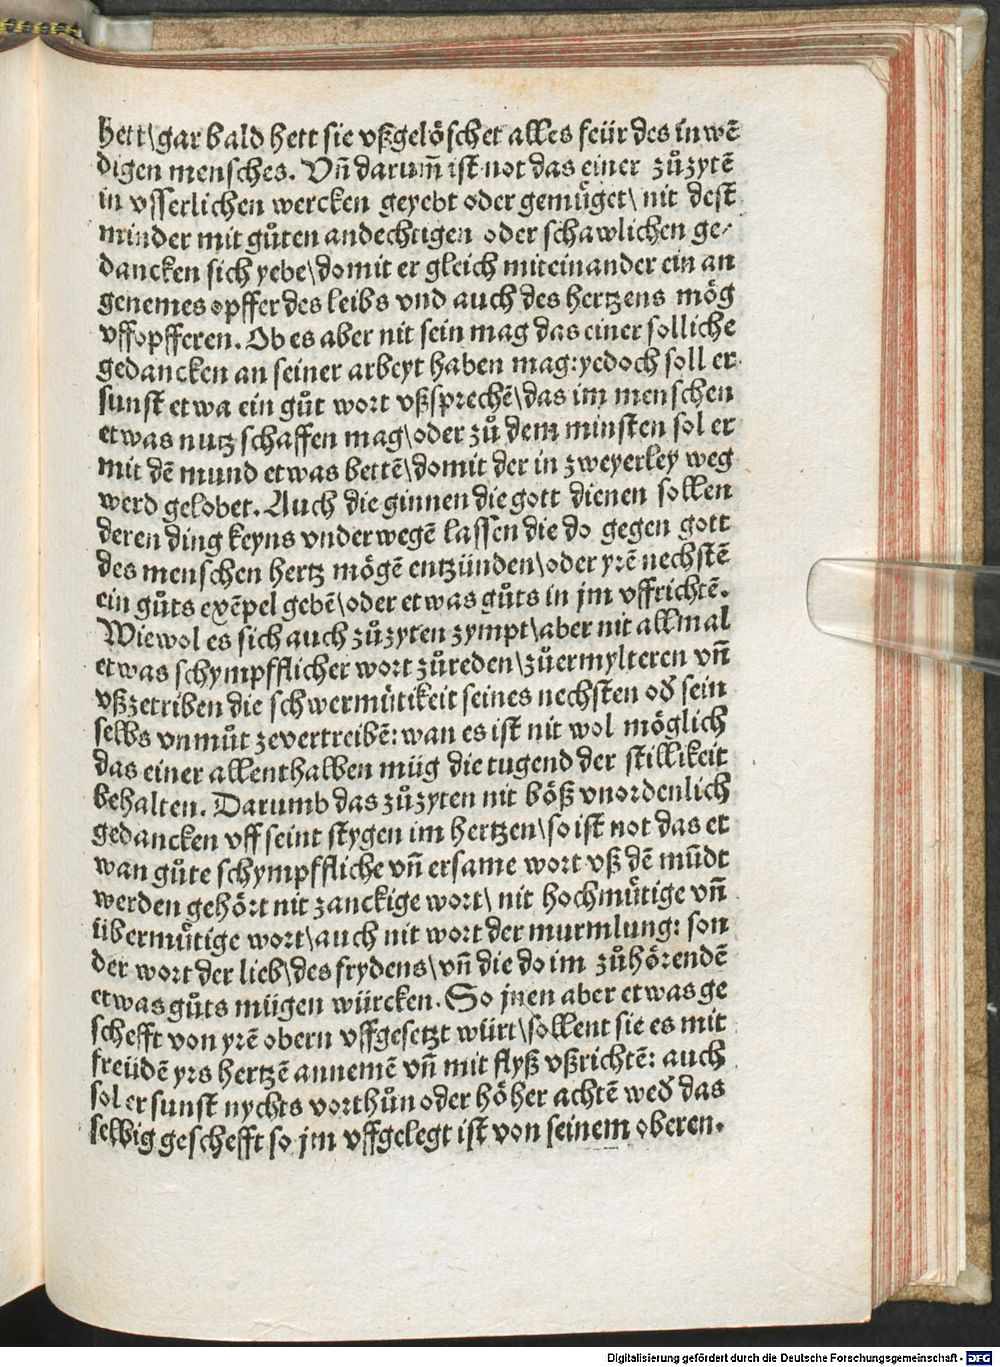 hett\gar bald hett sie vßgelöschet alles feür des inwē
digen mensches. Vñ darum̃ ist not das einer zůzytē
in vsserlichen wercken geyebt oder gemüget\ nit dest
minder mit gůten andechtigen oder schawlichen ge⸗
dancken sich yebe\domit er gleich miteinander ein an
genemes opffer des leibs vnd auch des hertzens mög
vffopfferen. Ob es aber nit sein mag das einer solliche
gedancken an seiner arbeyt haben mag:yedoch soll er
sunst etwa ein gůt wort vßsprechē\das im menschen
etwas nutz schaffen mag\oder zů dem minsten sol er
mit dē mund etwas bettē\domit der in zweyerley weg
werd gelobet. Auch die ginnen die gott dienen sollen
deren ding keyns vnderwegē lassen die do gegen gott
des menschen hertz mögē entzünden\oder yrē nechstē
ein gůts exēpel gebē\oder etwas gůts in jm vffrichtē.
Wiewol es sich auch zůzyten zympt\aber nit allmal
etwas schympfflicher wort zůreden\zůermylteren vñ
vßzetriben die schwermütikeit seines nechsten oď sein
selbs vnmůt zevertreibē: wan es ist nit wol möglich
das einer allenthalben müg die tugend der stillikeit
behalten. Darumb das zůzyten nit böß vnordenlich
gedancken vff seint stygen im hertzen\so ist not das et
wan gůte schympffliche vñ ersame wort vß dē mūdt
werden gehört nit zanckige wort\ nit hochmütige vñ
übermütige wort\auch nit wort der murmlung: son
der wort der lieb\des frydens\vñ die do im zůhörendē
etwas gůts mügen würcken. So jnen aber etwas ge
schefft von yrē obern vffgesetzt würt\sollent sie es mit
freüdē yrs hertzē annemē vñ mit flyß vßrichtē: auch
sol er sunst nychts vorthůn oder höher achtē weď das
selbig geschefft so jm vffgelegt ist von seinem oberen.
Digitalisierung gefördert durch die Deutsche Forschungsgemeinschaft - DFG